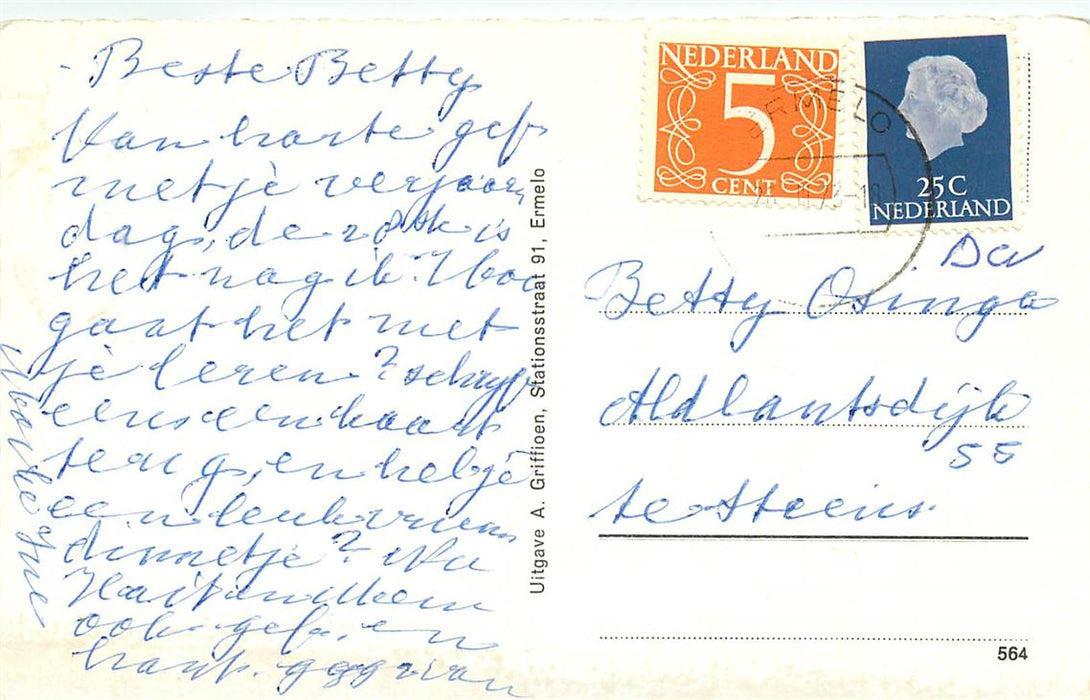 Beste Betty
Van harte gef
met je verjaar
dag, de zoek is
het nog ik. Hoe
gaat het met
je leren? schryf
eens een kaart
terug, en heb je
een leuk vrien
dinnetje? Nu
ook gef. en
van
Uitgave A. Griffioen, Stationsstraat 91, Ermelo
NEDERLAND
5
CENT
25 C
NEDERLAND
ERMELO
Betty Osinga
Aldlantsdijk
55
te Steens
564